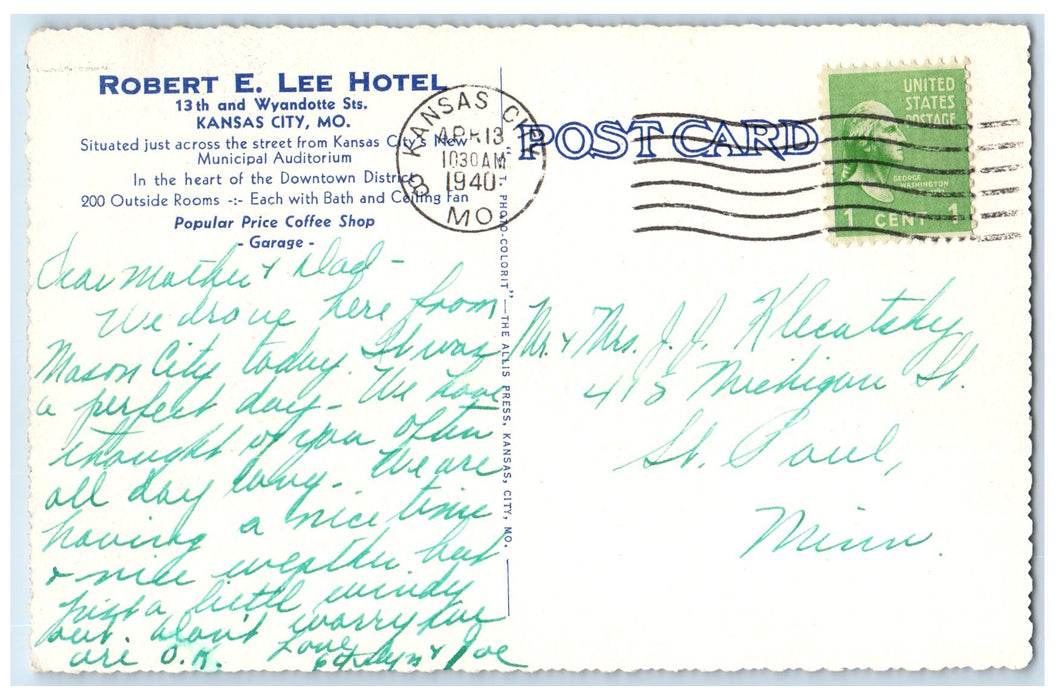 ROBERT E. LEE HOTEL
13th and Wyandotte Sts.
KANSAS CITY, MO.
Situated just across the street from Kansas City's New
Municipal Auditorium
In the heart of the Downtown District
200 Outside Rooms -:- Each with Bath and Ceiling Fan
Popular Price Coffee Shop
- Garage -
KANSAS CITY
APR 13
10 30 AM
1940
MO.
POST CARD
UNITED
STATES
POSTAGE
GEORGE
WASHINGTON
1 CENT 1
PHOTO-COLORIT" — THE ALLIS PRESS, KANSAS, CITY, MO.
Dear Mother & Dad -
We drove here from
Mason City today. It was
a perfect day - We have
thought of you often
all day long. We are
having a nice time
& nice weather but
just a little windy
but. don't worry we
are O.K. Love
& Joe
Mr. & Mrs. J. J. Klecatsky
413 Michigan St.
St. Paul,
Minn.